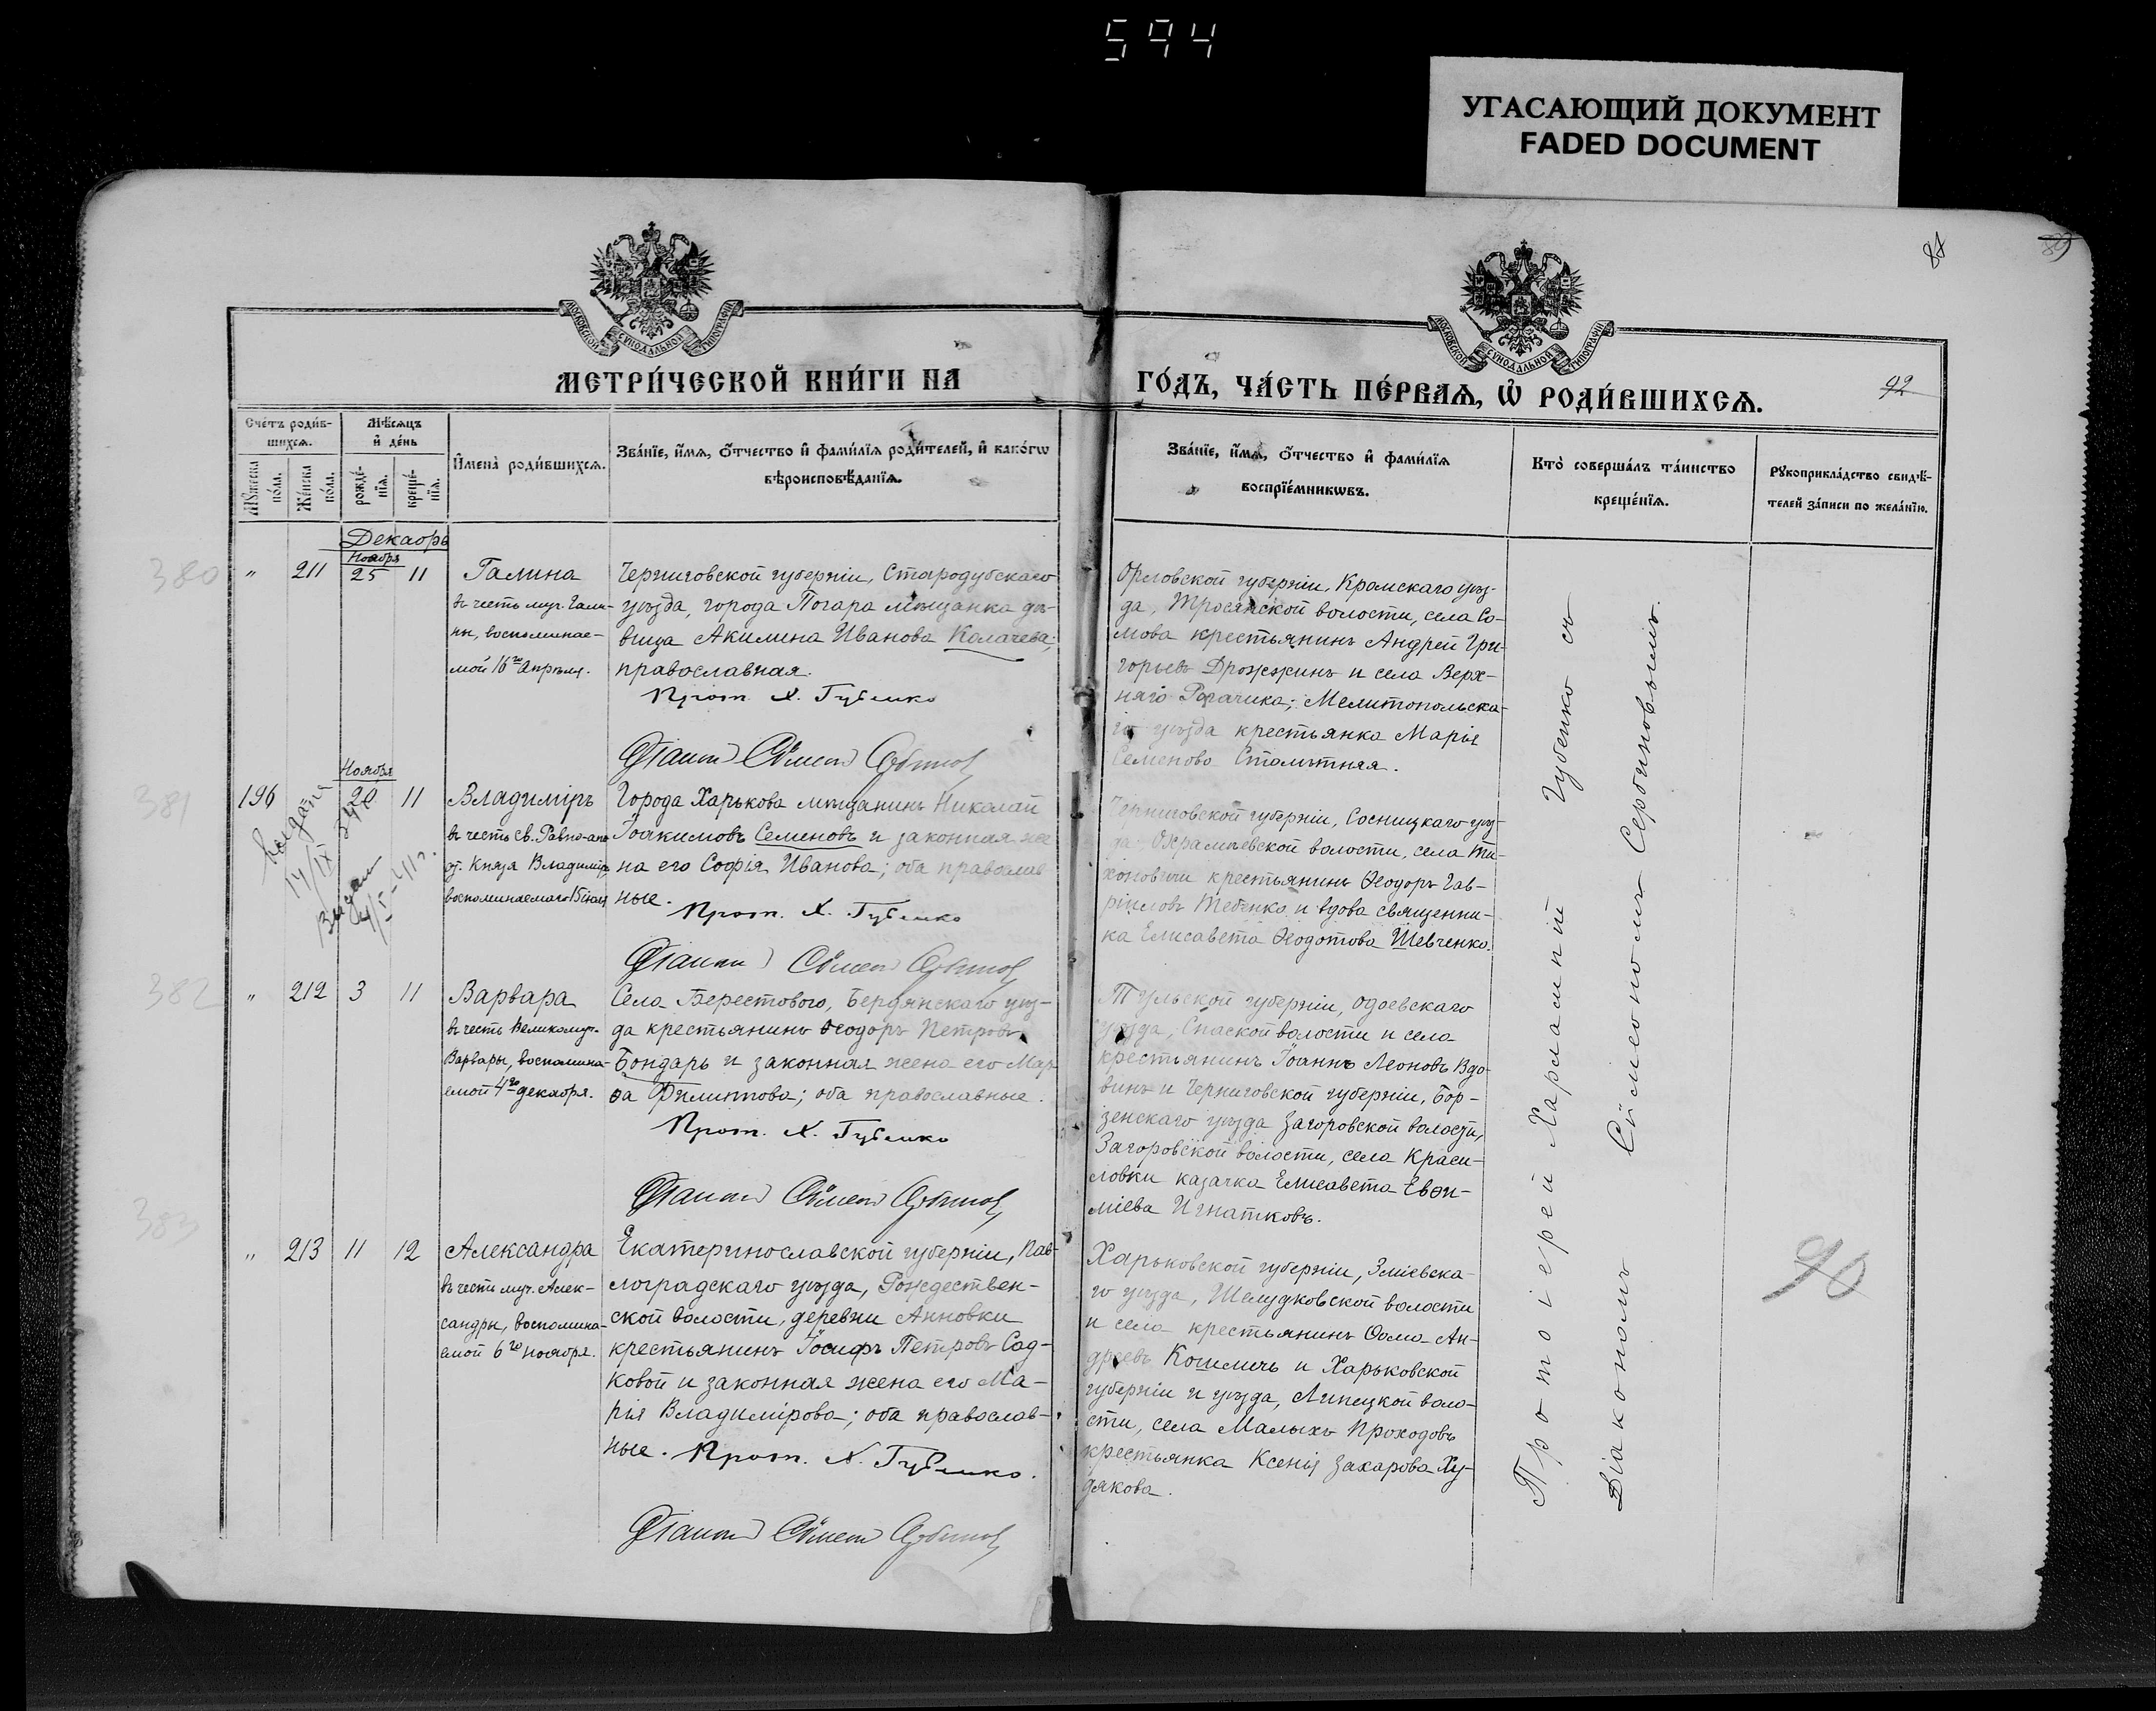 594
УГАСАЮЩИЙ ДОКУМЕНТ
FADED DOCUMENT
87
89
МОСКОВСКОЙ СѴНОДАЛЬНОЙ ТИПОГРАФІИ
МОСКОВСКОЙ СѴНОДАЛЬНОЙ ТИПОГРАФІИ
МЕТРИ́ЧЕСКОЙ КНИ́ГИ НА
ГО́ДЪ, ЧА́СТЬ ПЕ́РВАЯ, Ѡ҆ РОДИ́ВШИХСЯ.
92
Сче́тъ роди́в-
шихся.
Мѣ́сяцъ
и҆ де́нь
Мꙋ́жеска
по́ла.
Же́нска
по́ла.
рожде́-
нїя.
креще́-
нїя.
И҆мена̀ роди́вшихся.
Зва́нїе, и҆́мя, ѻ҆́тчество и҆ фами́лїя роди́телей, и҆ како́гѡ
вѣроисповѣ́данїя.
Зва́нїе, и҆́мя, ѻ҆́тчество и҆ фами́лїя
воспрїе́мникѡвъ.
Кто̀ соверша́лъ та́инство
креще́нїя.
Рꙋкоприкла́дство свидѣ́-
телей за́писи по жела́нїю.
Декабрь
380
"
211
Ноября
25
11
Галина
въ честь муч. Гали-
ны, воспоминае-
мой 16го Апрѣля.
Черниговской губерніи, Стародубскаго
уѣзда, города Погара мѣщанка дѣ-
вица Акилина Иванова Калачева;
православная.
Прот. Х. Губенко
Діаконъ Сѵмеонъ Сербиновъ
Орловской губерніи, Кромскаго уѣз-
да, Тросянской волости, села Со-
мова крестьянинъ Андрей Гри-
горьевъ Дрожжинъ и села Верх-
няго Рогачика, Мелитопольска-
го уѣзда крестьянка Марія
Семенова Столѣтняя.
381
196
Ноября
20
11
Владиміръ
въ честь св. Равно-апо
Князя Владиміра
воспоминаемаго 15 іюля
Выдан
Города Харькова мѣщанинъ Николай
Іоакимовъ Семеновъ и законная же
на его Софія Иванова; оба православ
ные.
Прот. Х. Губенко
Діаконъ Сѵмеонъ Сербиновъ
Черниговской губерніи, Сосницкаго уѣз-
да Охрамѣевской волости, села Ти-
хоновичи крестьянинъ Ѳеодоръ Гав-
ріиловъ Тебенко и вдова священни-
ка Елисавета Ѳеодотова Шевченко.
382
"
212
3
11
Варвара
въ честь Великомуч.
Варвары, воспомина-
емой 4го декабря.
Села Берестового, Бердянскаго уѣз-
да крестьянинъ Ѳеодоръ Петровъ
Бондарь и законная жена его Мар-
ѳа Филиппова; оба православные.
Прот. Х. Губенко
Діаконъ Сѵмеонъ Сербиновъ
Тульской губерніи, Одоевскаго
уѣзда, Спаской волости и села
крестьянинъ Іоаннъ Леоновъ Вдо-
винъ и Черниговской губерніи, Бор-
зенскаго уѣзда Загоровской волости,
Загоровской волости, села Краси-
ловки казачка Елисавета Евѳи-
міева Игнатковъ.
383
"
213
11
12
Александра
въ честь муч. Алек-
сандры, воспомина-
емой 6го ноября.
Екатеринославской губерніи, Пав-
лоградскаго уѣзда, Рождествен-
ской волости, деревни Анновки
крестьянинъ Іосифъ Петровъ Сад-
ковой и законная жена его Ма-
рія Владимірова; оба православ-
ные. Прот. Х. Губенко.
Діаконъ Сѵмеонъ Сербиновъ
Харьковской губерніи, Зміевска-
го уѣзда, Шелудковской волости
и села крестьянинъ Ѳома Ан-
дреевъ Кошмичь и Харьковской
губерніи и уѣзда, Липецкой воло-
сти, села Малыхъ Проходовъ
крестьянка Ксенія Захарова Ху-
дякова.
Протоіерей Харлампій Губенко съ
Діакономъ Сѵмеономъ Сербиновымъ.
90